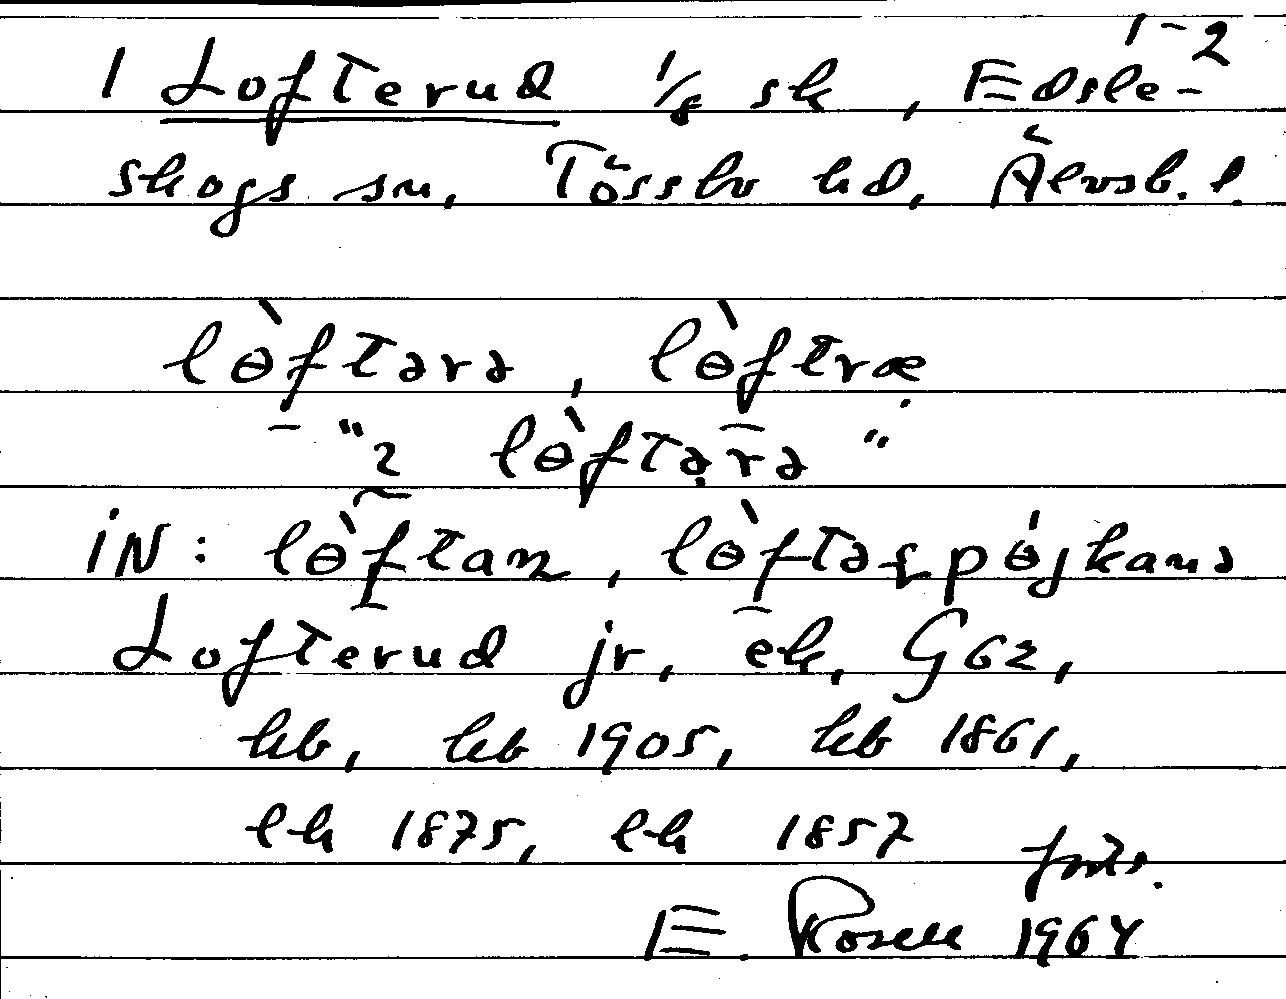 1-2
1 Lofterud 1/8 sk, Edsle-
skogs sn, Tössbo hd, Älvsb. l.
lɵ̀ftərə, lɵ̀ftræ
"2 lɵ̀ftərə"
iN: lɵ̀ftan, lɵ̀ftəs pɵjkanə
Lofterud jr, ek, G62,
hb, kb 1905, kb 1861,
lh 1875, lh 1857
forts.
E. Rosell 1964